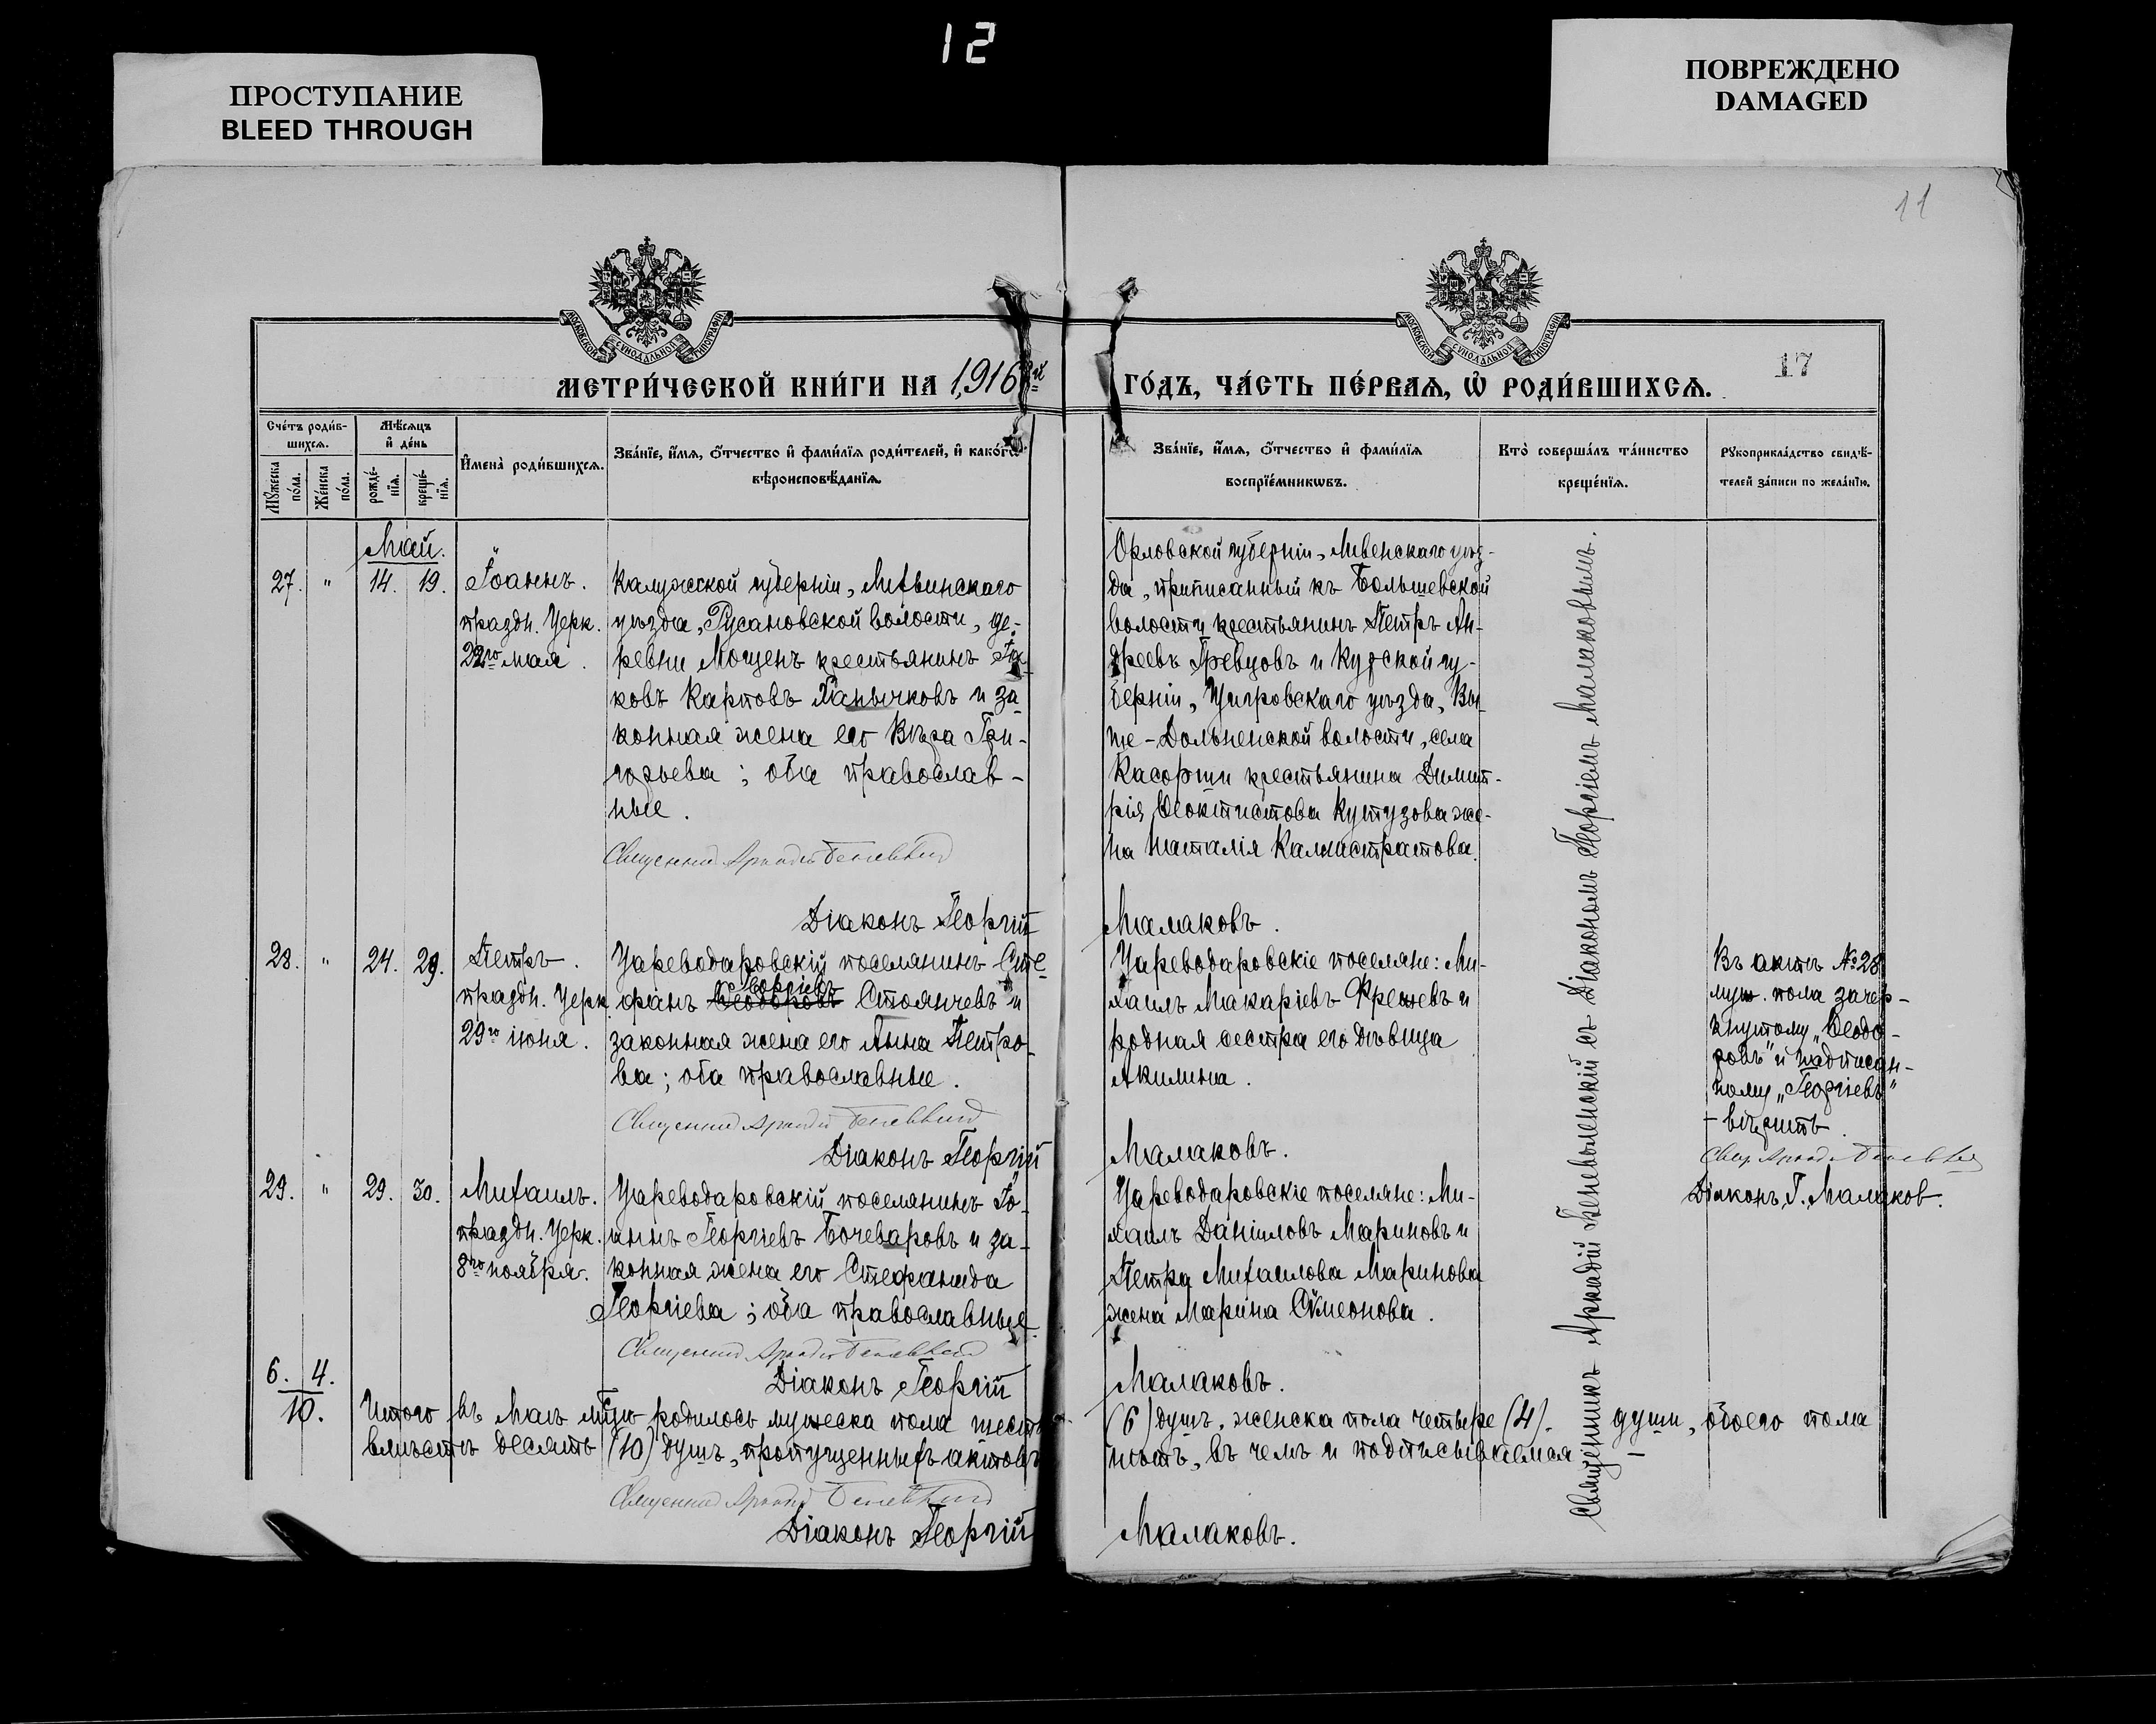 12
ПРОСТУПАНИЕ
BLEED THROUGH
ПОВРЕЖДЕНО
DAMAGED
11
17
МОСКОВСКОЙ СѴНОДАЛЬНОЙ ТИПОГРАФІИ
МОСКОВСКОЙ СѴНОДАЛЬНОЙ ТИПОГРАФІИ
МЕТРИ́ЧЕСКОЙ КНИ́ГИ НА 1916й
ГО́ДЪ, ЧА́СТЬ ПЕ́РВАѦ, Ѡ҆ РОДИ́ВШИХСѦ.
Сче́тъ роди́в-
шихсѧ.
Мꙋ́жеска по́ла.
Же́нска по́ла.
Мѣ́сѧцъ
и҆ де́нь
рожде́-
нїѧ.
креще́-
нїѧ.
И҆мена̀ роди́вшихсѧ.
Зва́нїе, и҆́мѧ, о҆́тчество и҆ фами́лїѧ роди́телей, и҆ како́гѡ
вѣроисповѣ́данїѧ.
Зва́нїе, и҆́мѧ, о҆́тчество и҆ фами́лїѧ
воспрїе́мникѡвъ.
Кто̀ соверша́лъ та́инство
креще́нїѧ.
Рꙋкоприкла́дство свидѣ́-
телей за́писи по жела́нїю.
Май.
27. " 14. 19.
Іоаннъ.
праздн. Церк.
22го мая.
Калужской губерніи, Мещвинскаго
уѣзда, Русановской волости, де-
ревни Мощенъ крестьянинъ Іа-
ковъ Карповъ Ханычковъ и за-
конная жена его Вѣра Гри-
горьева; оба православ-
ные.
Священникъ Аркадій Беневоленскій
Діаконъ Георгій
Орловской губерніи, Ливенскаго уѣз-
да, приписанный къ Большевской
волости крестьянинъ Петръ Ан-
дреевъ Гревцовъ и Курской гу-
берніи, Щигровскаго уѣзда, Вы-
ше-Дольненской волости, села
Касоржи крестьянина Димит-
рія Ѳеоктистова Кутузова же-
на Наталія Калистратова.
Малаковъ.
28. " 24. 29.
Петръ.
праздн. Церк.
29го іюня.
Цареводаровскій поселянинъ Сте-
Георгіевъ
фанъ Ѳеодоровъ Стоянчевъ и
законная жена его Анна Петро-
ва; оба православные.
Священникъ Аркадій Беневоленскій
Діаконъ Георгій
Цареводаровскіе поселяне: Ми-
хаилъ Макаріевъ Крешевъ и
родная сестра его дѣвица
Акилина.
Малаковъ.
Въ актѣ №28
муж. пола зачер-
кнутому "Ѳеодо-
ровъ" и надписан-
ному "Георгіевъ"
- вѣрить.
Свящ. Аркадій Беневоленскій
Діаконъ Г. Малаков.
29. " 29. 30.
Михаилъ.
праздн. Церк.
8го ноября.
Цареводаровскій поселянинъ Іо-
аннъ Георгіевъ Бочеваровъ и за-
конная жена его Стефанида
Георгіева; оба православные.
Священникъ Аркадій Беневоленскій
Діаконъ Георгій
Цареводаровскіе поселяне: Ми-
хаилъ Даніиловъ Мариновъ и
Петра Михаилова Маринова
жена Марина Сѵмеонова.
Малаковъ.
Священникъ Аркадій Беневоленскій съ Діакономъ Георгіемъ Малаковымъ.
6. 4.
10.
Итого въ Маѣ мѣсяцѣ родилось мужеска пола шесть (6) душъ, женска пола четыре (4) души, обоего пола
вмѣстѣ десять (10) душъ, пропущенныхъ актовъ нѣтъ, въ чемъ и подписываемся:
Священникъ Аркадій Беневоленскій
Діаконъ Георгій Малаковъ.